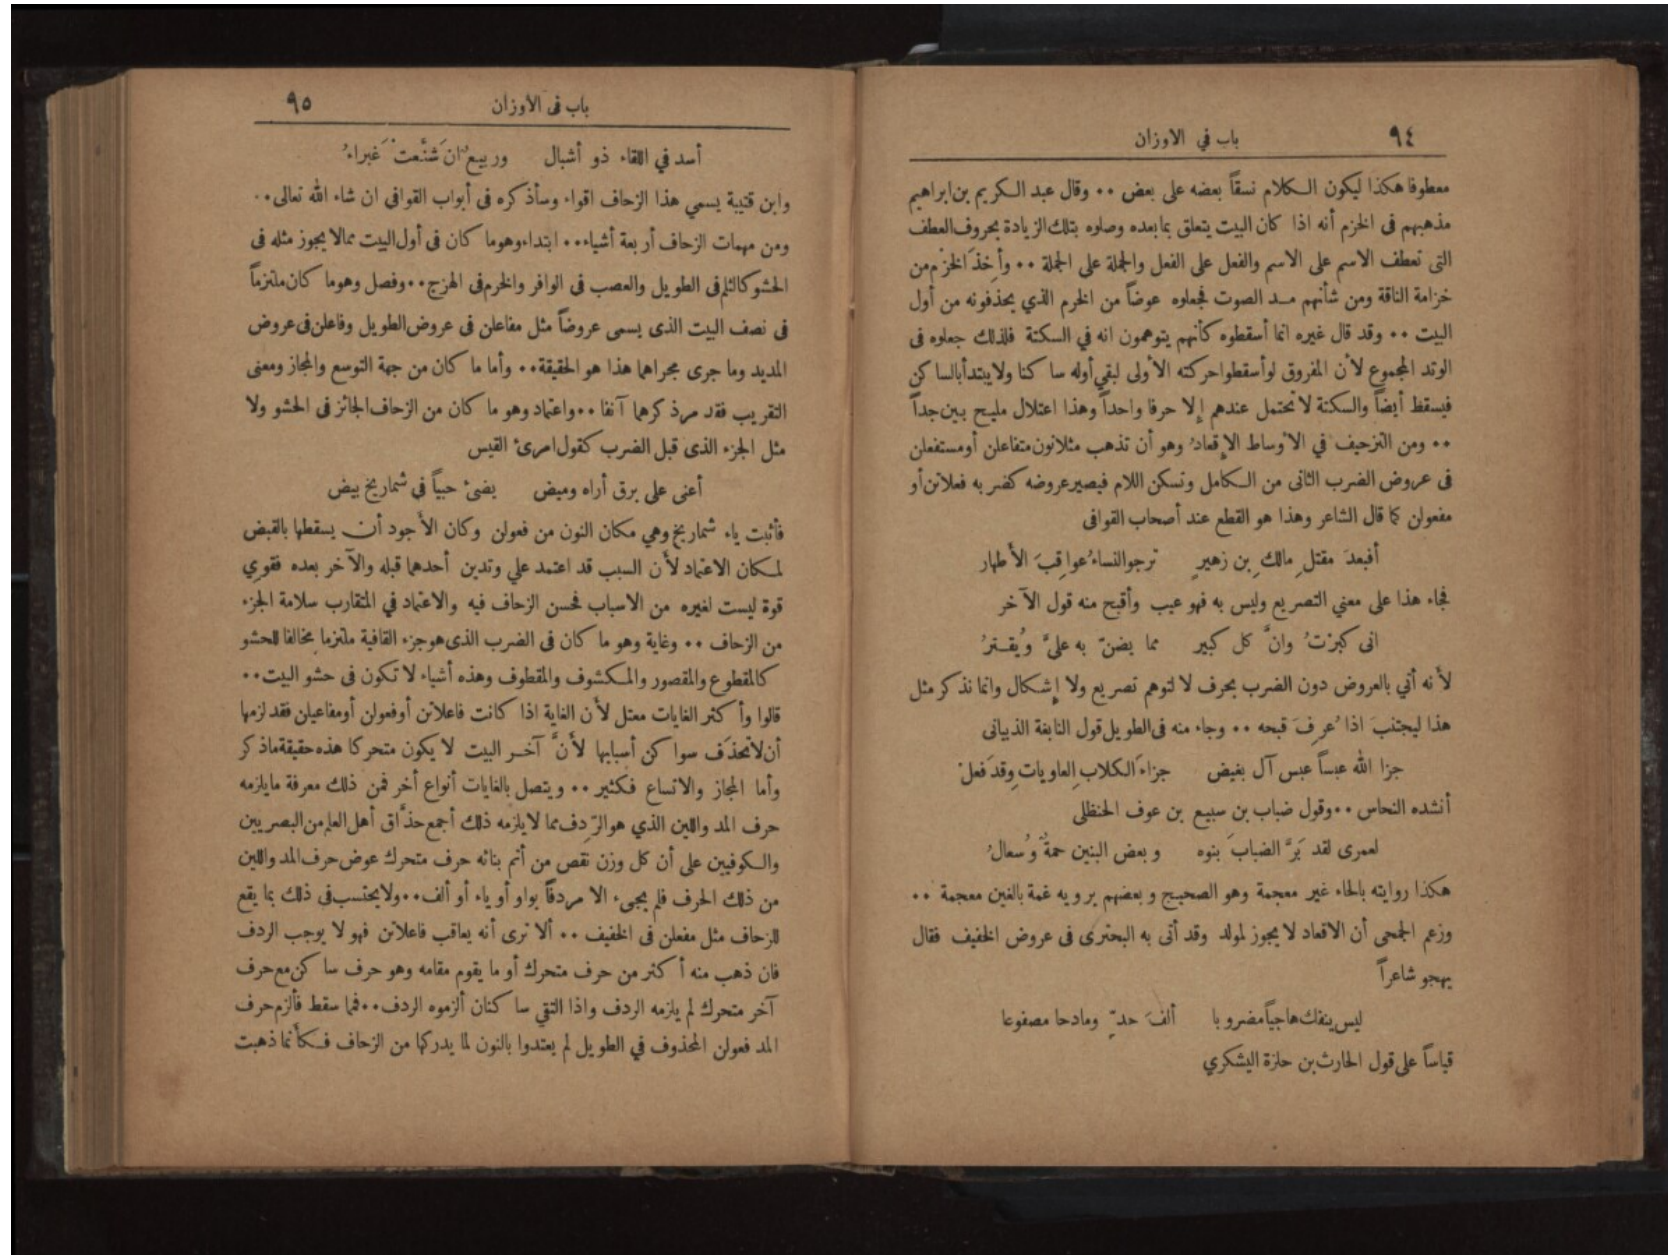 ٩٤
باب في الاوزان
معطوفا هكذا ليكون الكلام نسقاً بعضه على بعض ٠٠ وقال عبد الكريم بن ابراهيم
مذهبهم فى الخزم أنه اذا كان البيت يتعلق بمابعده وصلوه بتلك الزيادة بحروف العطف
التى تعطف الاسم على الاسم والفعل على الفعل والجملة على الجملة ٠٠ وأخِذَ الخزْم من
خزامة الناقة ومن شأنهم مد الصوت فجعلوه عوضاً من الخرم الذي يحذفونه من أول
البيت ٠٠ وقد قال غيره انما أسقطوه كأنهم يتوهمون انه في السكتة فلذلك جعلوه فى
الوتد المجموع لأن المفروق لو أسقطوا حركته الأولى لبقي أوله ساكنا ولا يبتدأ بالساكن
فيسقط أيضاً والسكتة لا تحتمل عندهم إلا حرفا واحداً وهذا اعتلال مليح بين جداً
٠٠ ومن التزحيف في الأوساط الإقعادُ وهو أن تذهب مثلا نون متفاعلن أو مستفعلن
فى عروض الضرب الثانى من الكامل وتسكن اللام فيصير عروضه كضربه فعلاتن أو
مفعولن كما قال الشاعر وهذا هو القطع عند أصحاب القوافى
أفبعدَ مقتلِ مالكِ بن زهيرٍ ترجو النساءُ عواقبَ الأطهار
فجاء هذا على معني التصريع وليس به فهو عيب وأقبح منه قول الآخر
انى كبرْتُ وانَّ كل كبير مما يضنّ به علىَّ ويُقترُ
لأنه أتي بالعروض دون الضرب بحرف لا لتوهم تصريع ولا إشكال وانما نذكر مثل
هذا ليجتنبَ اذا عُرِفَ قبحه ٠٠ وجاء منه فى الطويل قول النابغة الذبيانى
جزا الله عبساً عبس آل بغيض جزاءَ الكلابِ العاوياتِ وقدَ فعلْ
أنشده النحاس ٠٠ وقول ضباب بن سبيع بن عوف الحنظلى
لعمرى لقد بَرَّ الضبابَ بنوه وبعض البنين حمةٌ وسُعالُ
هكذا روايته بالحاء غير معجمة وهو الصحيح وبعضهم يرويه غمة بالغين معجمة ٠٠
وزعم الجمحى أن الاقعاد لا يجوز لمولد وقد أتى به البحترى فى عروض الخفيف فقال
يهجو شاعراً
ليس ينفك هاجياً مضروبا ألفَ حدّ ٍ ومادحا مصفوعا
قياساً على قول الحارث بن حلزة اليشكري
٩٥
باب فى الاوزان
أسد في اللقاء ذو أشبال وربيعٌ انَ شنَّعتْ غَبراءُ
وابن قتيبة يسمي هذا الزحاف اقواء وسأذكره فى أبواب القوافى ان شاء الله تعالى ٠٠
ومن مهمات الزحاف أربعة أشياء ٠٠ ابتداء وهو ما كان فى أول البيت مما لا يجوز مثله فى
الحشو كالثلم فى الطويل والعصب فى الوافر والخرم فى الهزج ٠٠ وفصل وهو ما كان ملتزماً
فى نصف البيت الذى يسمى عروضاً مثل مفاعلن فى عروض الطويل وفاعلن فى عروض
المديد وما جرى مجراهما هذا هو الحقيقة ٠٠ وأما ما كان من جهة التوسع والمجاز ومعنى
التقريب فقد مر ذكرهما آنفا ٠٠ واعتماد وهو ما كان من الزحاف الجائز فى الحشو ولا
مثل الجزء الذى قبل الضرب كقول امرئ القيس
أعنى على برق أراه وميض يضئ حبياً في شماريخ بيض
فأثبت ياء شماريخ وهي مكان النون من فعولن وكان الأجود أن يسقطها بالقبض
لمكان الاعتماد لأن السبب قد اعتمد علي وتدين أحدهما قبله والآخر بعده فقوي
قوة ليست لغيره من الاسباب فحسن الزحاف فيه والاعتماد في المتقارب سلامة الجزء
من الزحاف ٠٠ وغاية وهو ما كان فى الضرب الذى هو جزء القافية ملتزما مخالفا للحشو
كالمقطوع والمقصور والمكشوف والمقطوف وهذه أشياء لا تكون فى حشو البيت ٠٠
قالوا وأكثر الغايات معتل لأن الغاية اذا كانت فاعلاتن أو فعولن أو مفاعيلن فقد لزمها
أن لا تحذَف سواكن أسبابها لأنَّ آخر البيت لا يكون متحركا هذه حقيقة ماذكر
وأما المجاز والاتساع فكثير ٠٠ ويتصل بالغايات أنواع أخر فمن ذلك معرفة مايلزمه
حرف المد واللين الذي هو الرِّدف مما لا يلزمه ذلك أجمع حذَّاق أهل العلم من البصريين
والكوفيين على أن كل وزن نقص من أتم بنائه حرف متحرك عوض حرف المد واللين
من ذلك الحرف فلم يجىء الا مردفاً بواو أو ياء أو ألف ٠٠ ولا يحتسب فى ذلك بما يقع
للزحاف مثل مفعلن فى الخفيف ٠٠ ألا ترى أنه يعاقب فاعلاتن فهو لا يوجب الردف
فان ذهب منه أكثر من حرف متحرك أو ما يقوم مقامه وهو حرف ساكن مع حرف
آخر متحرك لم يلزمه الردف واذا التقي ساكنان ألزموه الردف ٠٠ فما سقط فألزم حرف
المد فعولن المحذوف في الطويل لم يعتدوا بالنون لما يدركها من الزحاف فكأنما ذهبت